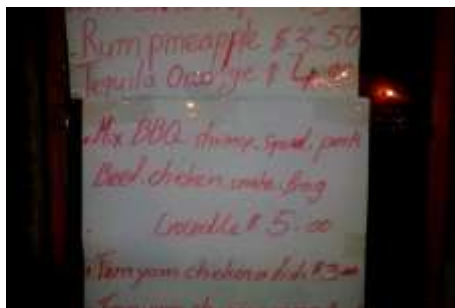 Rum pineapple $ 3.50
Tequila Orange $ 4.00
Mix BBQ shrimp, squid, pork
Beef, chicken, snake, frog
Crocodile $ 5.00
Tom yam chicken or fish $ 3.00
Tom yam